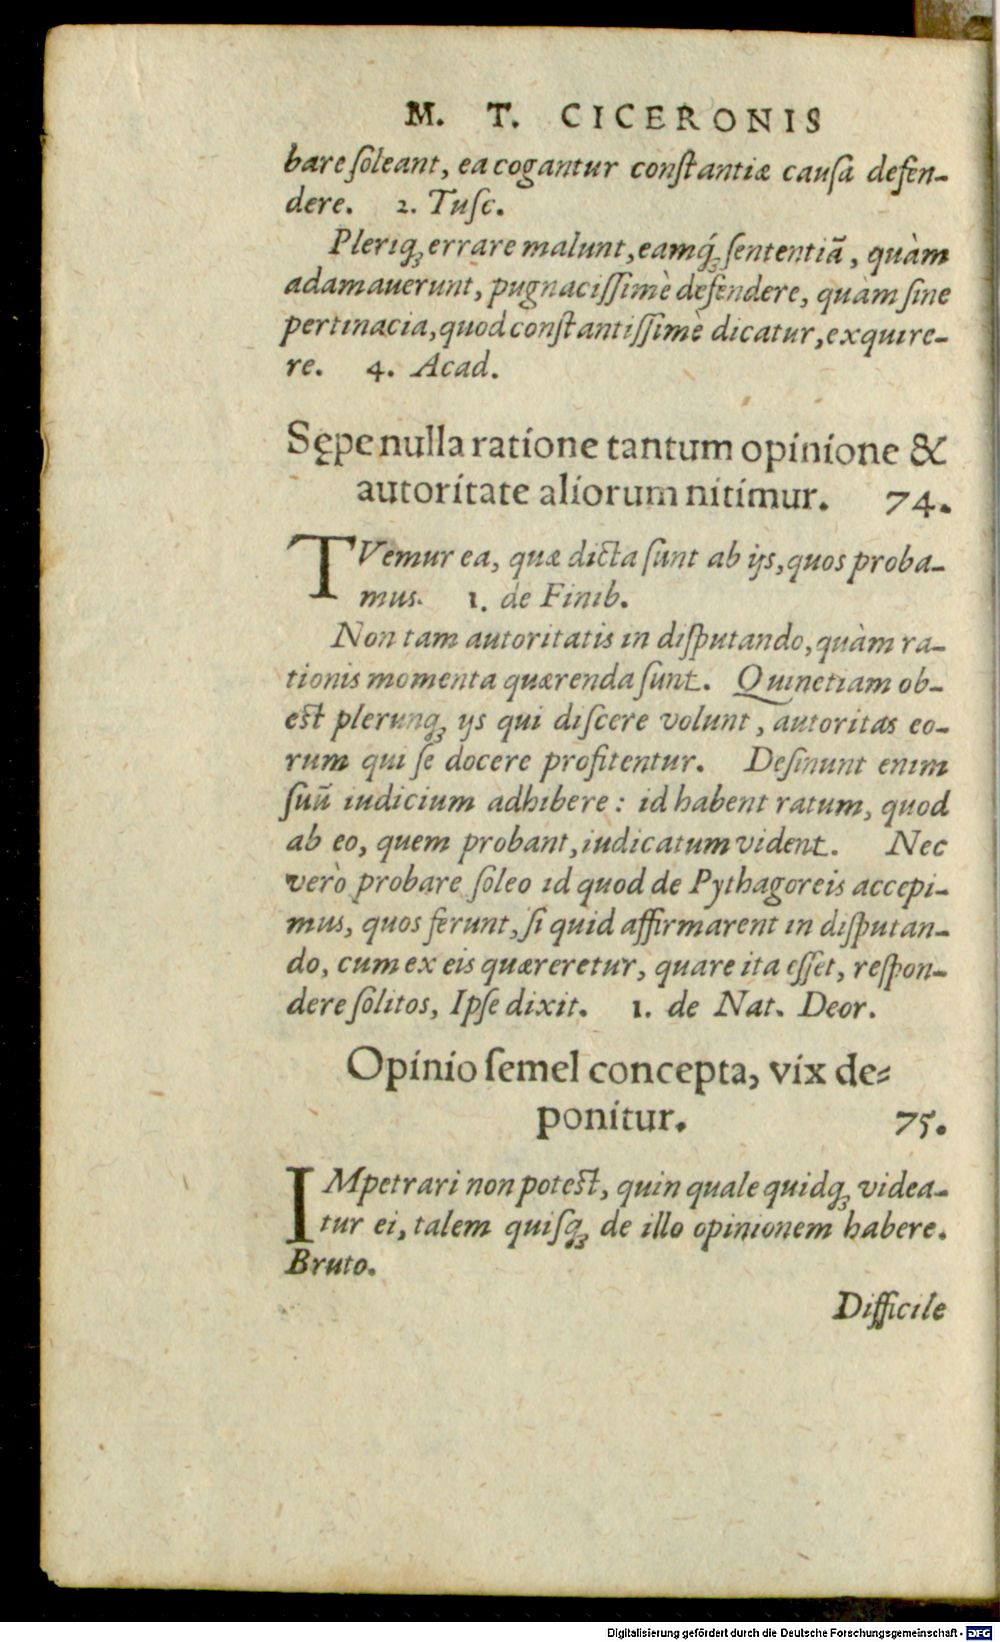 M. T. CICERONIS
bare ſoleant, ea cogantur conſtantiæ cauſa defen-
dere. 2. Tuſc.
Pleriq; errare malunt, eamq́; ſententiā, quàm
adamauerunt, pugnaciſſimè defendere, quàm ſine
pertinacia, quod conſtantiſſimè dicatur, exquire-
re. 4. Acad.
Sępe nulla ratione tantum opinione &
autoritate aliorum nitimur. 74.
TVemur ea, quæ dicta ſunt ab ijs, quos proba-
mus. 1. de Finib.
Non tam autoritatis in diſputando, quàm ra-
tionis momenta quærenda ſunt. Quinetiam ob-
eſt plerunq; ijs qui diſcere volunt, autoritas eo-
rum qui ſe docere profitentur. Deſinunt enim
ſuū iudicium adhibere: id habent ratum, quod
ab eo, quem probant, iudicatum vident. Nec
verò probare ſoleo id quod de Pythagoreis accepi-
mus, quos ferunt, ſi quid affirmarent in diſputan-
do, cum ex eis quæreretur, quare ita eſſet, reſpon-
dere ſolitos, Ipſe dixit. 1. de Nat. Deor.
Opinio ſemel concepta, vix de-
ponitur. 75.
IMpetrari non poteſt, quin quale quidq; videa-
tur ei, talem quiſq; de illo opinionem habere.
Bruto.
Difficile
Digitalisierung gefördert durch die Deutsche Forschungsgemeinschaft - DFG